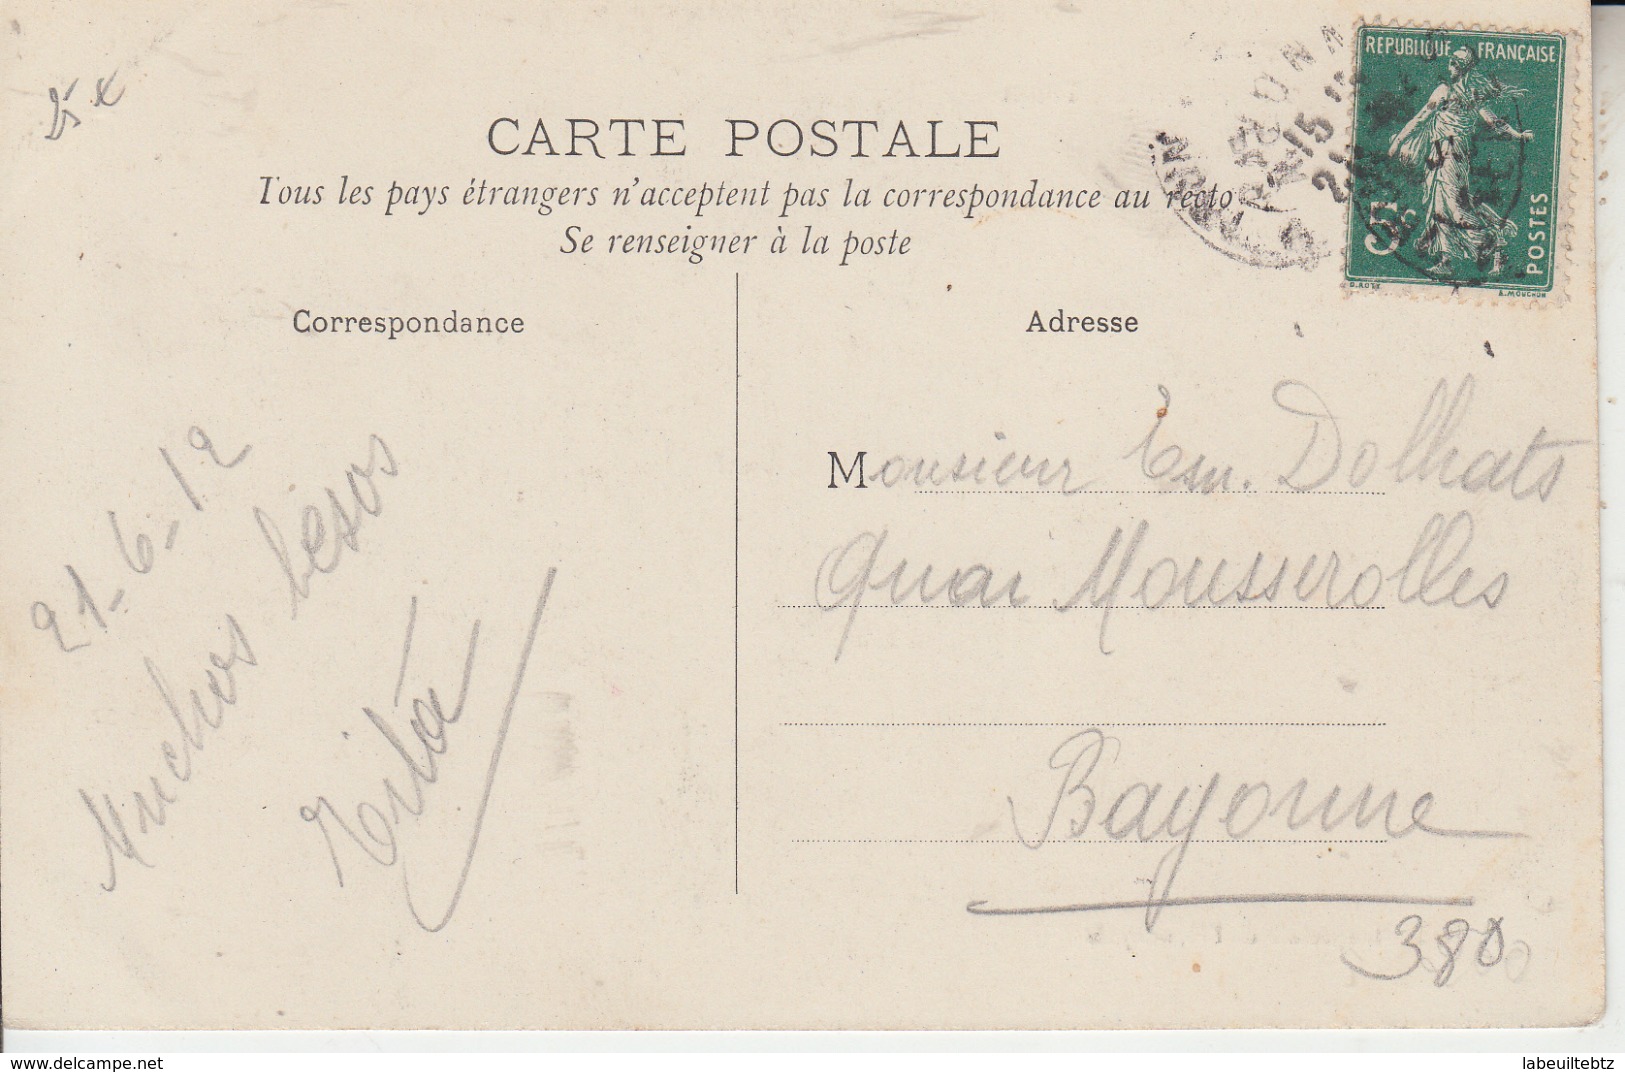 25 x
CARTE POSTALE
Tous les pays étrangers n'acceptent pas la correspondance au recto
Se renseigner à la poste
REPUBLIQUE FRANÇAISE
5c
POSTES
O. ROTY
A. MOUCHON
Correspondance
21-6-12
Muchos besos
Adresse
Monsieur Em. Dolhats
Quai Mousserolles
Bayonne
380
www.delcampe.net
labeuiltebtz